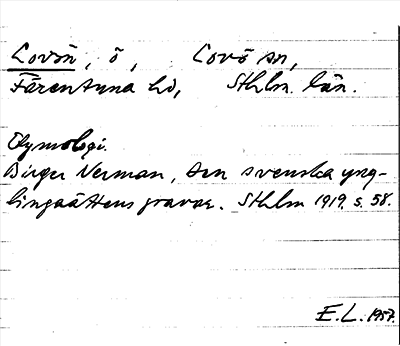 Lovön, ö, Lovö sn,
Färentuna hd, Sthlm. län.
Etymologi.
Birger Nerman, Den svenska yng-
lingaättens gravar. Sthlm 1919. s. 58.
E.L. 1957.